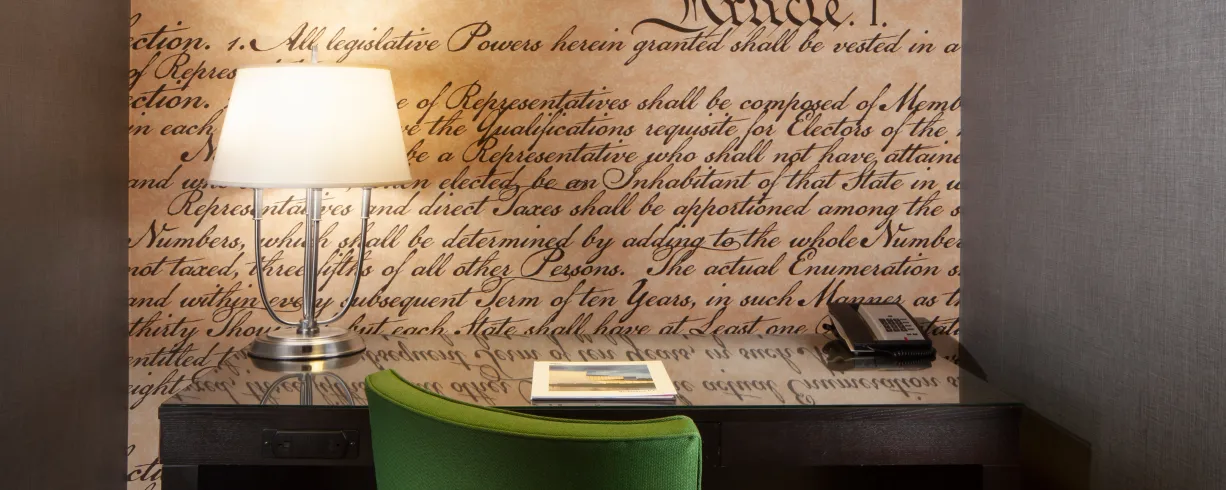 Article. I.
ection. 1. All legislative Powers herein granted shall be vested in a
of Repres
ection. e of Representatives shall be composed of Memb
in each ve the Qualifications requisite for Electors of the
N be a Representative who shall not have attaine
and w when elected, be an Inhabitant of that State in w
Representatives and direct Taxes shall be apportioned among the s
Numbers, which shall be determined by adding to the whole Number
not taxed, three fifths of all other Persons. The actual Enumeration s
and within every subsequent Term of ten Years, in such Manner as th
thirty Thou but each State shall have at Least one
entitled t
ught
cti